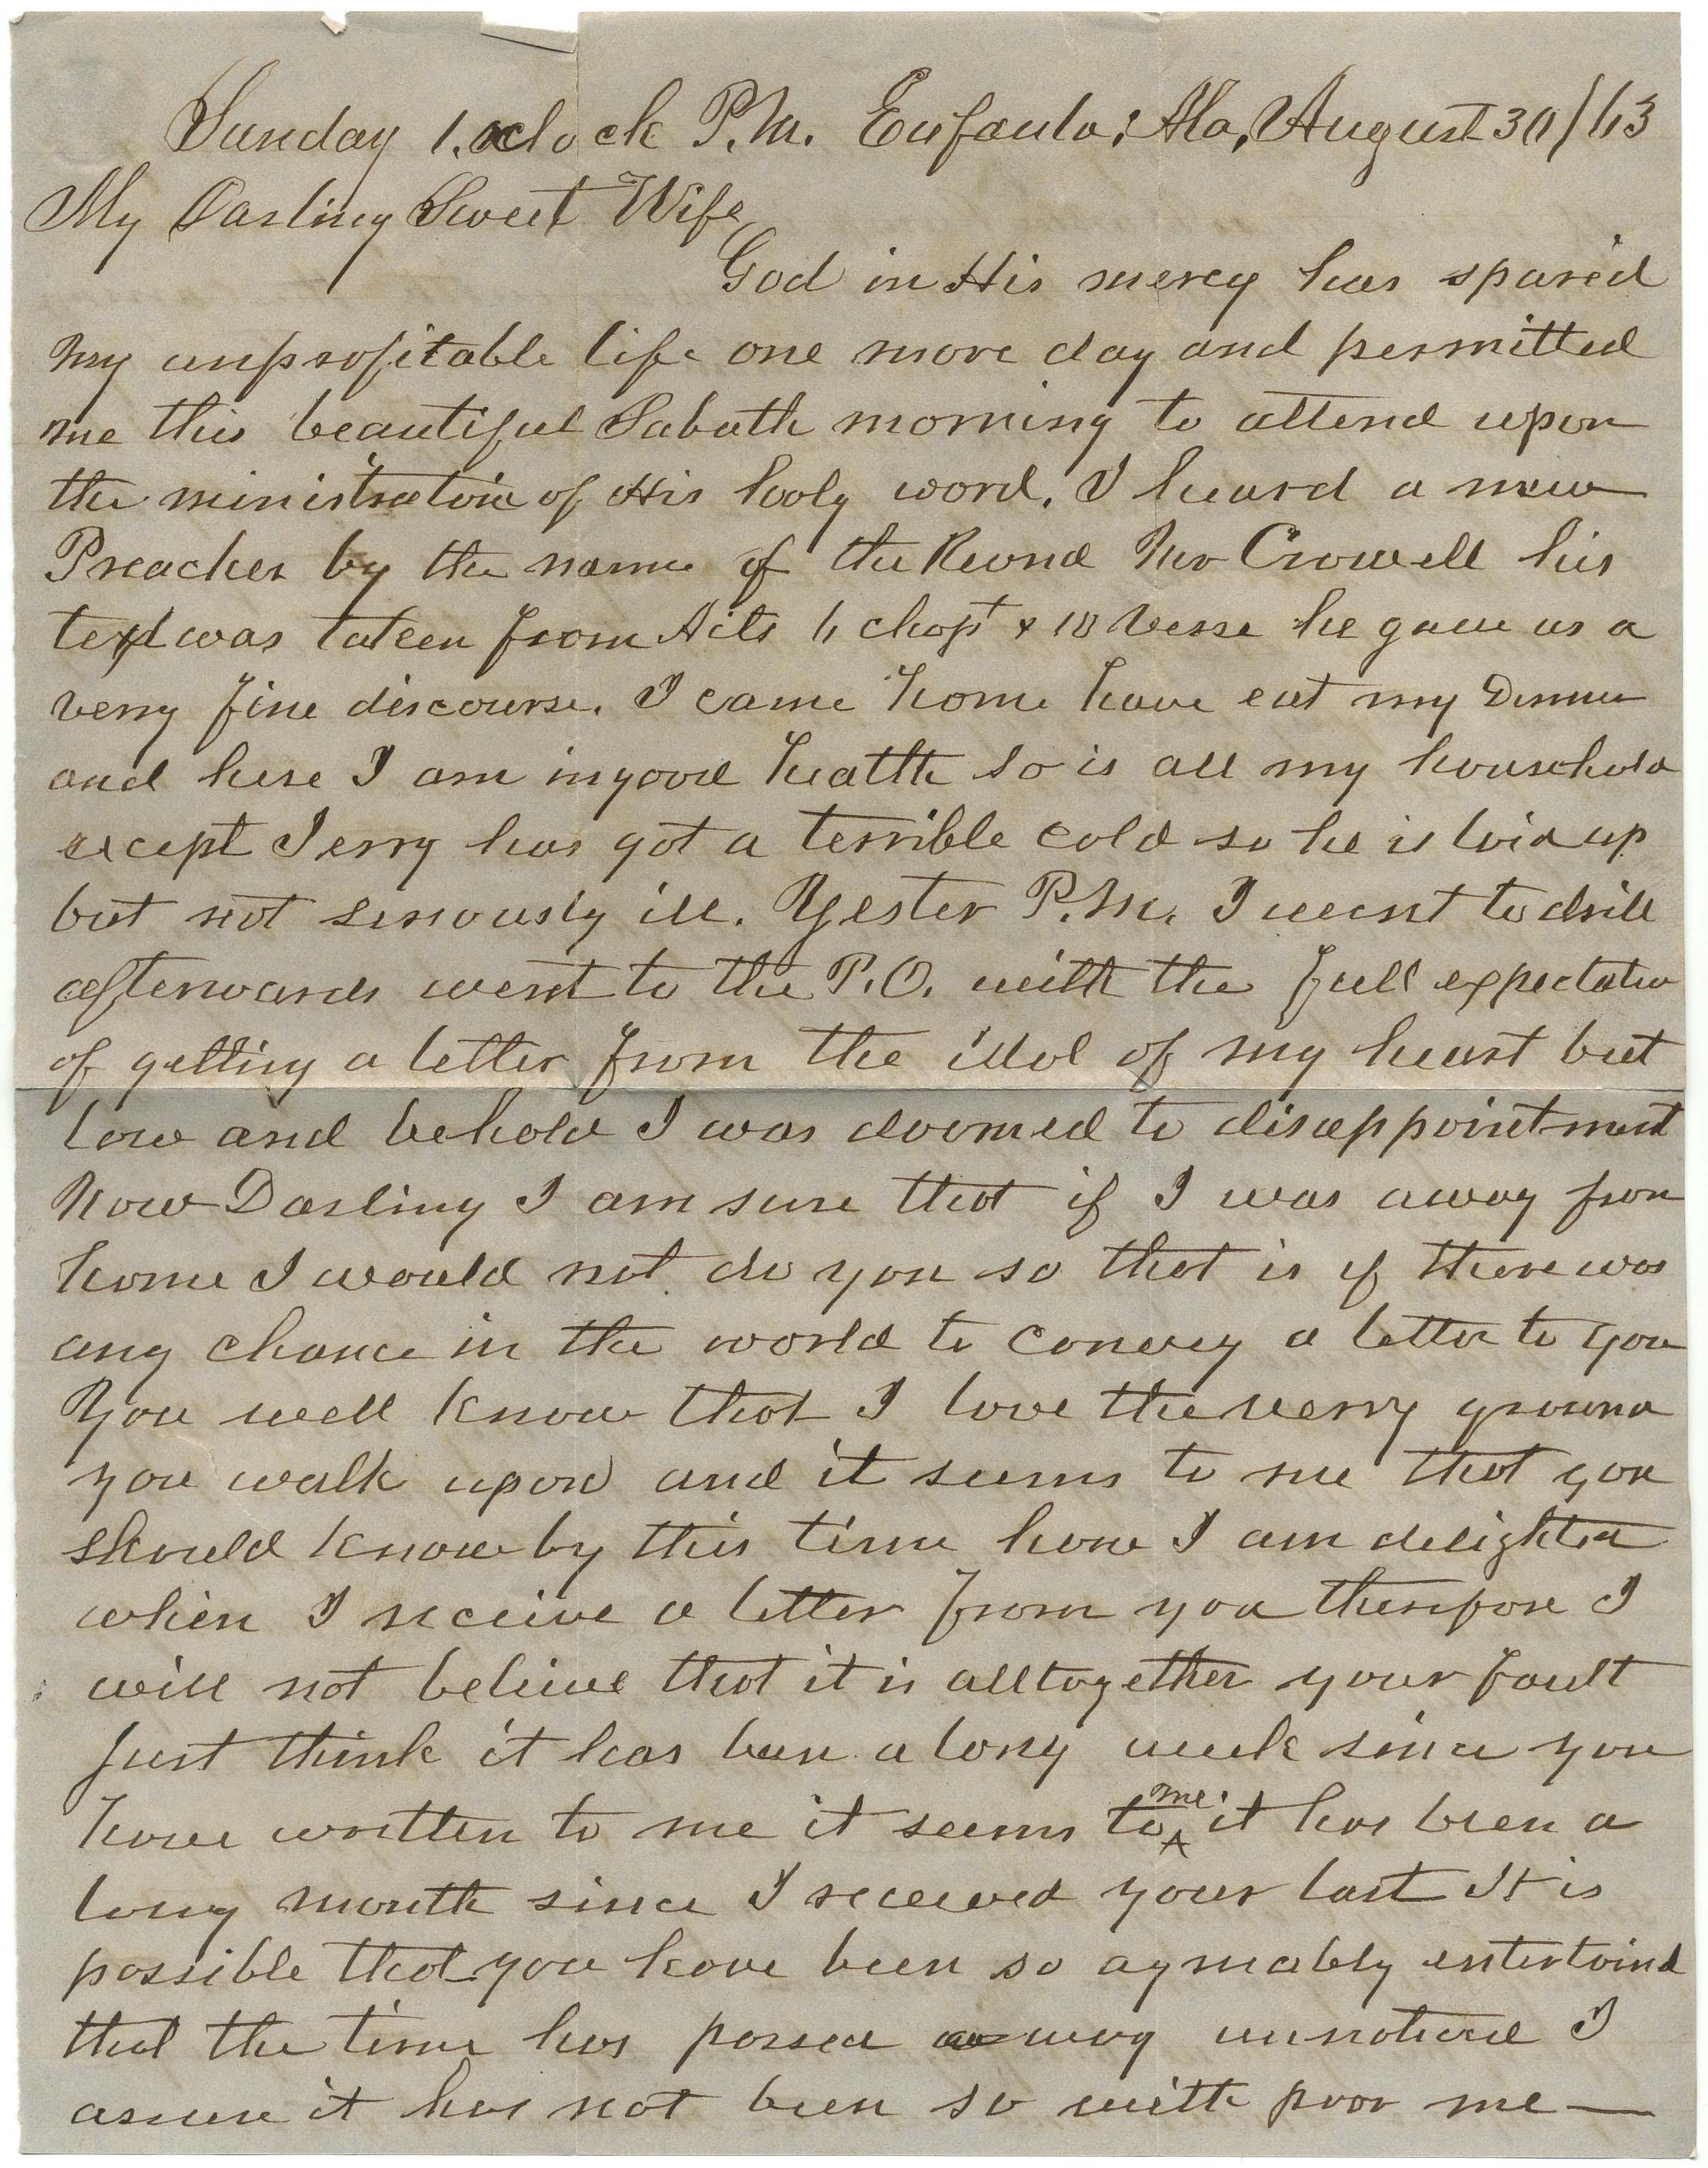 Sunday 1. oclock P.M. Eufaula, Ala, August 30/63
My Darling Sweet Wife
God in His mercy has spared
my unprofitable life one more day and permitted
me this beautiful Sabath morning to attend upon
the ministration of His holy word. I heard a new
Preacher by the name of the Revnd Mr Crowell his
text was taken from Acts chapt & 10 Verse he gave us a
verry fine discourse. I came home have eat my Dinner
and here I am in good health so is all my household
except Jerry has got a terrible cold so he is laid up
but not seriously ill. Yester P.M. I went to drill
afterwards went to the P.O. with the full expectation
of getting a letter from the idol of my heart but
low and behold I was doomed to disappointment
Now Darling I am sure that if I was away from
home I would not do you so that is if there was
any chance in the world to convey a letter to you
You well know that I love the verry ground
you walk upon and it seems to me that you
should know by this time how I am delighted
when I receive a letter from you therefore I
will not believe that it is alltogether your fault
Just think it has been a long week since you
have written to me it seems to me it has been a
long month since I received your last It is
possible that you have been so aymably entertaind
that the time has passed away unnoticed I
assure it has not been so with poor me —